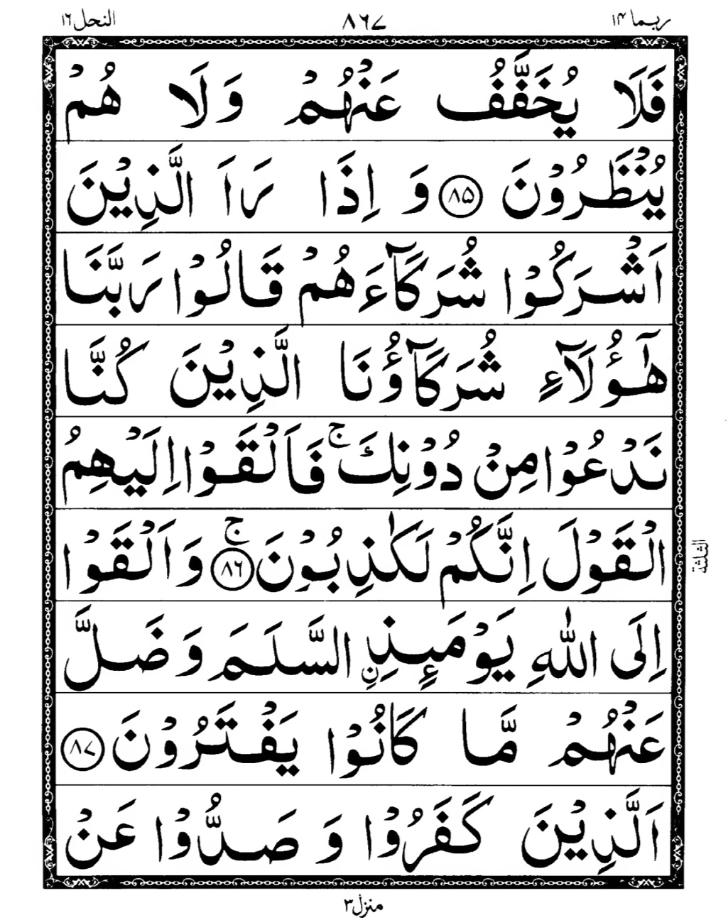 ربما ١٤ ٨٦٧ النحل ١٦
فَلَا يُخَفَّفُ عَنْهُمْ وَلَا هُمْ
يُنْظَرُوْنَ ﴿٨٥﴾ وَ اِذَا رَاَ الَّذِيْنَ
اَشْرَكُوْا شُرَكَآءَهُمْ قَالُوْا رَبَّنَا
هٰٓؤُلَآءِ شُرَكَآؤُنَا الَّذِيْنَ كُنَّا
نَدْعُوْا مِنْ دُوْنِكَ ۚ فَاَلْقَوْا اِلَيْهِمُ
الْقَوْلَ اِنَّكُمْ لَكٰذِبُوْنَ ﴿٨٦﴾ ۚ وَاَلْقَوْا
الثلثة
اِلَى اللّٰهِ يَوْمَئِذِ ِۨالسَّلَمَ وَضَلَّ
عَنْهُمْ مَّا كَانُوْا يَفْتَرُوْنَ ﴿٨٧﴾
اَلَّذِيْنَ كَفَرُوْا وَ صَدُّوْا عَنْ
منزل ٣